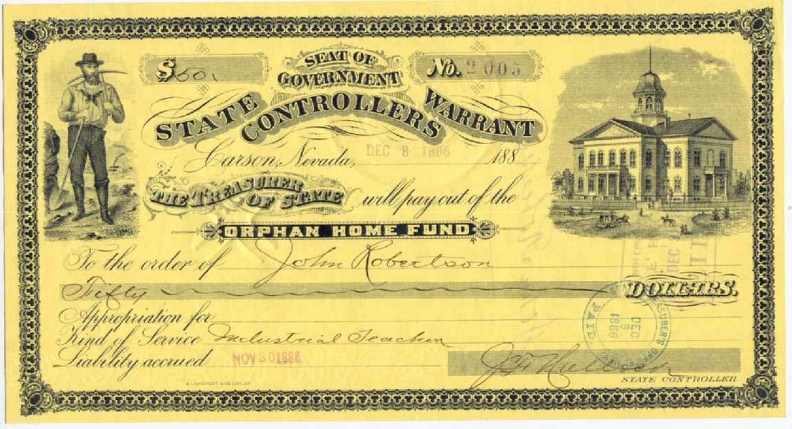 $50. SEAT OF GOVERNMENT No. 2005
STATE CONTROLLERS WARRANT
Carson, Nevada, DEC 8 1886 188
THE TREASURER OF STATE will pay out of the
ORPHAN HOME FUND
To the order of John Robertson
Fifty DOLLARS.
Appropriation for
Kind of Service Industrial Teacher
Liability accrued NOV 30 1886
STATE CONTROLLER
TREASURER'S
DEC
1886
PAID
DEC